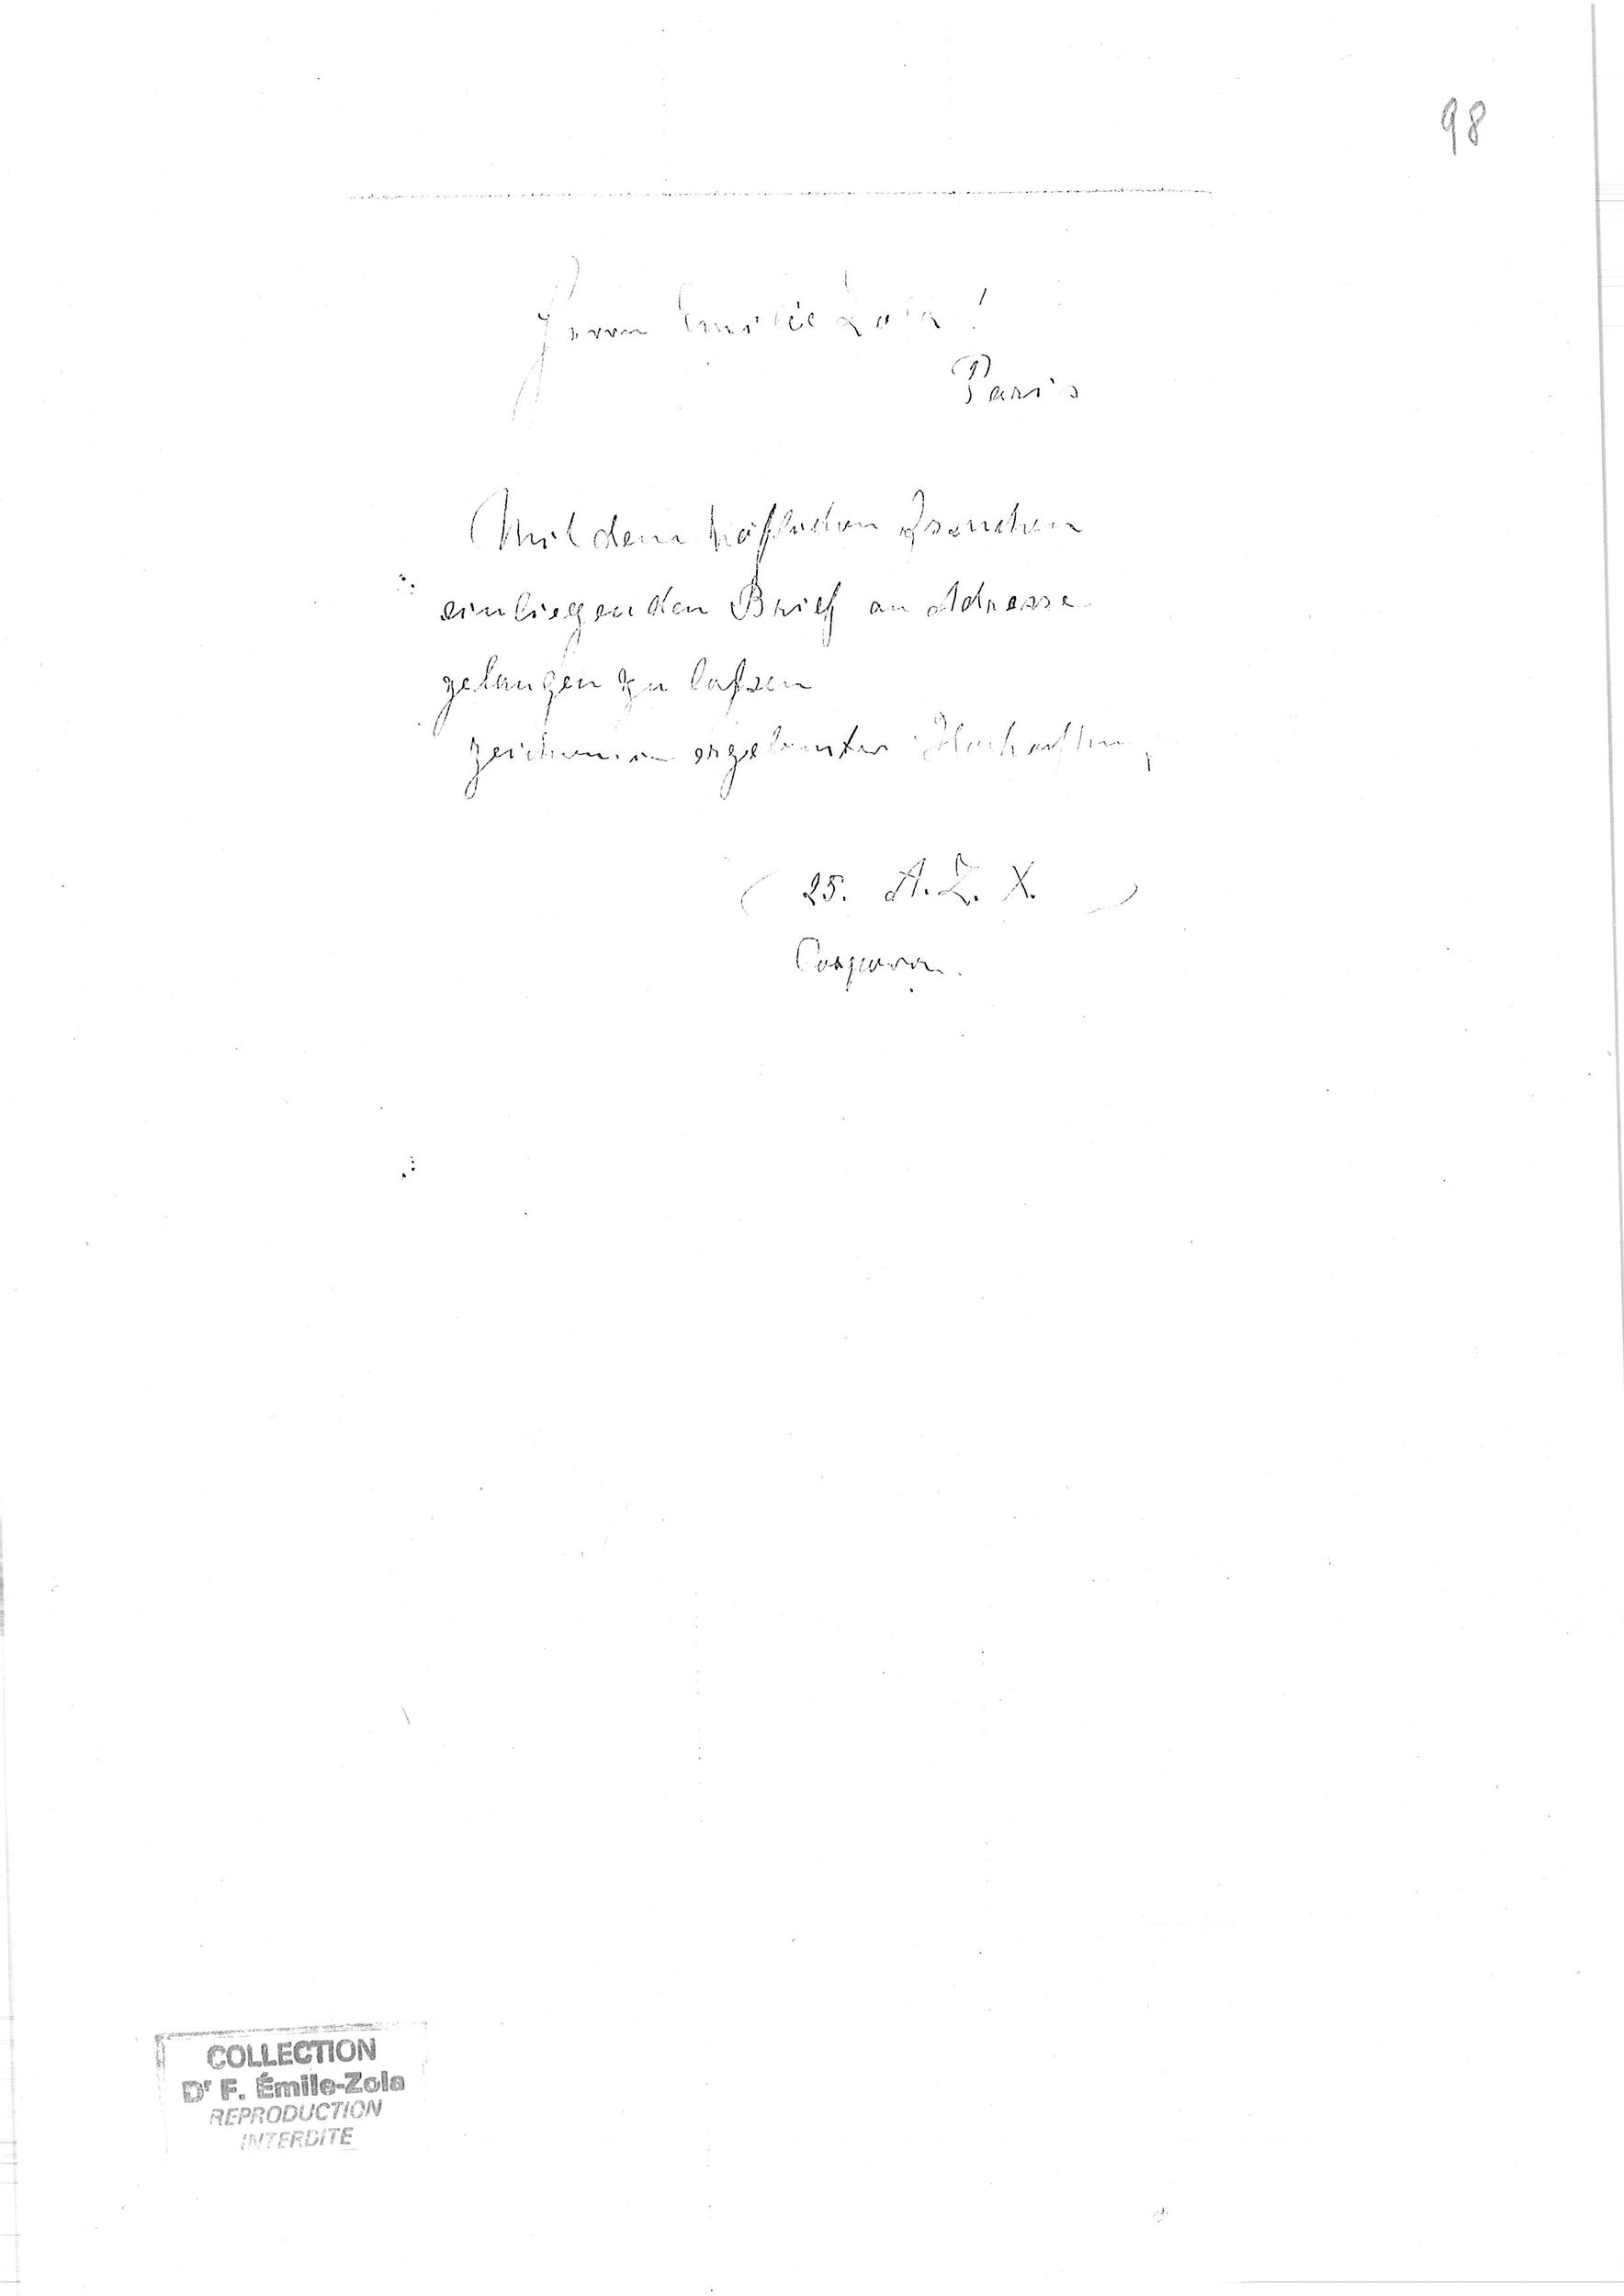 98
Herrn Emilie Zola!
Paris
Mit dem höflichen Ersuchen
einliegenden Brief an Adresse
gelangen zu laßen
zeichnen ergebenster
25. A. Z. X.
COLLECTION
Dr F. Émile-Zola
REPRODUCTION
INTERDITE